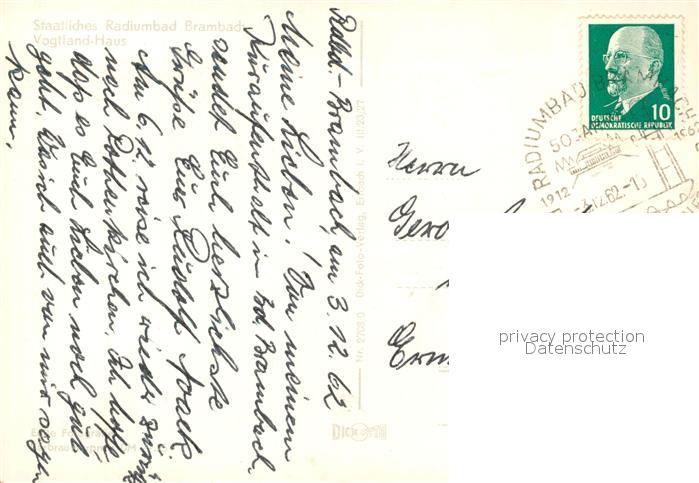 Staatliches Radiumbad Brambach
Vogtland-Haus
Radbd.-Brambach, am 3.12.62
Meine Lieben! Von meinem
Kuraufenthalt in Bd. Brambach
sendet Euch herzlichste
Grüße Euer Rudolf
Am 6.12. reise ich wieder zurück
nach Rothenkirchen. Ich hoffe
daß es Euch Lieben noch gut
geht. Was ich auch von mir sagen
kann.
Nr. 2708 D Dick-Foto-Verlag, Erlbach i. V.
DICK
Herrn
DEUTSCHE
DEMOKRATISCHE REPUBLIK
10
RADIUMBAD BRAMBACH
50 JAHRE
1912
1962
-3.12.62
privacy protection
Datenschutz